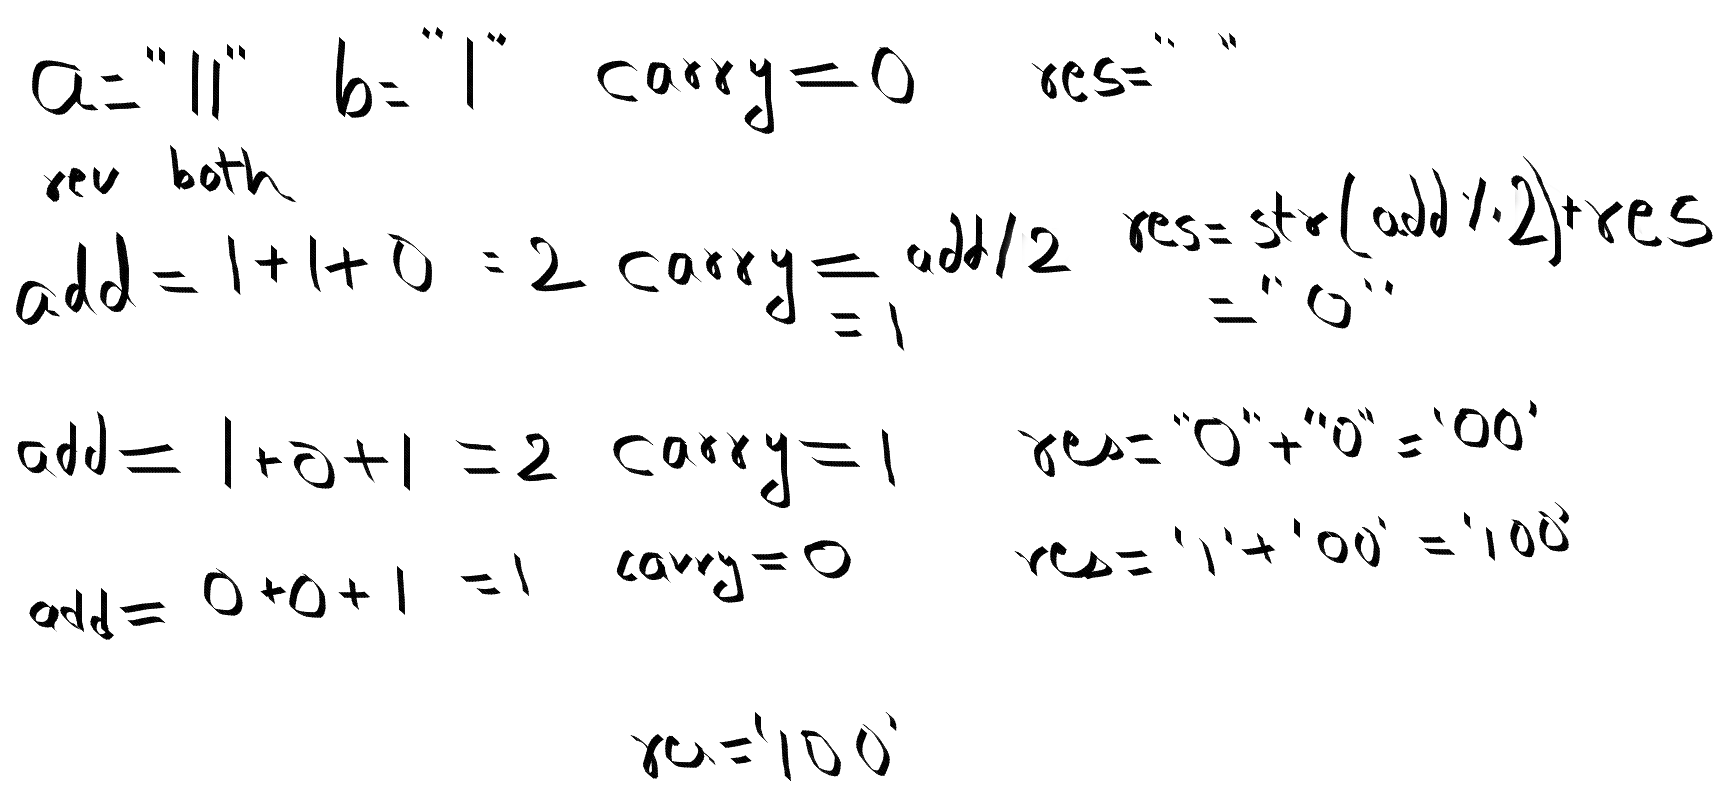 a="11" b="1" carry=0 res=" "
rev both
add = 1+1+0 = 2 carry = add/2 res= str(add%2)+res
= 1 = "0"
add = 1+0+1 = 2 carry = 1 res= "0"+"0" = '00'
add = 0+0+1 = 1 carry = 0 res= '1'+'00' = '100'
res = '100'